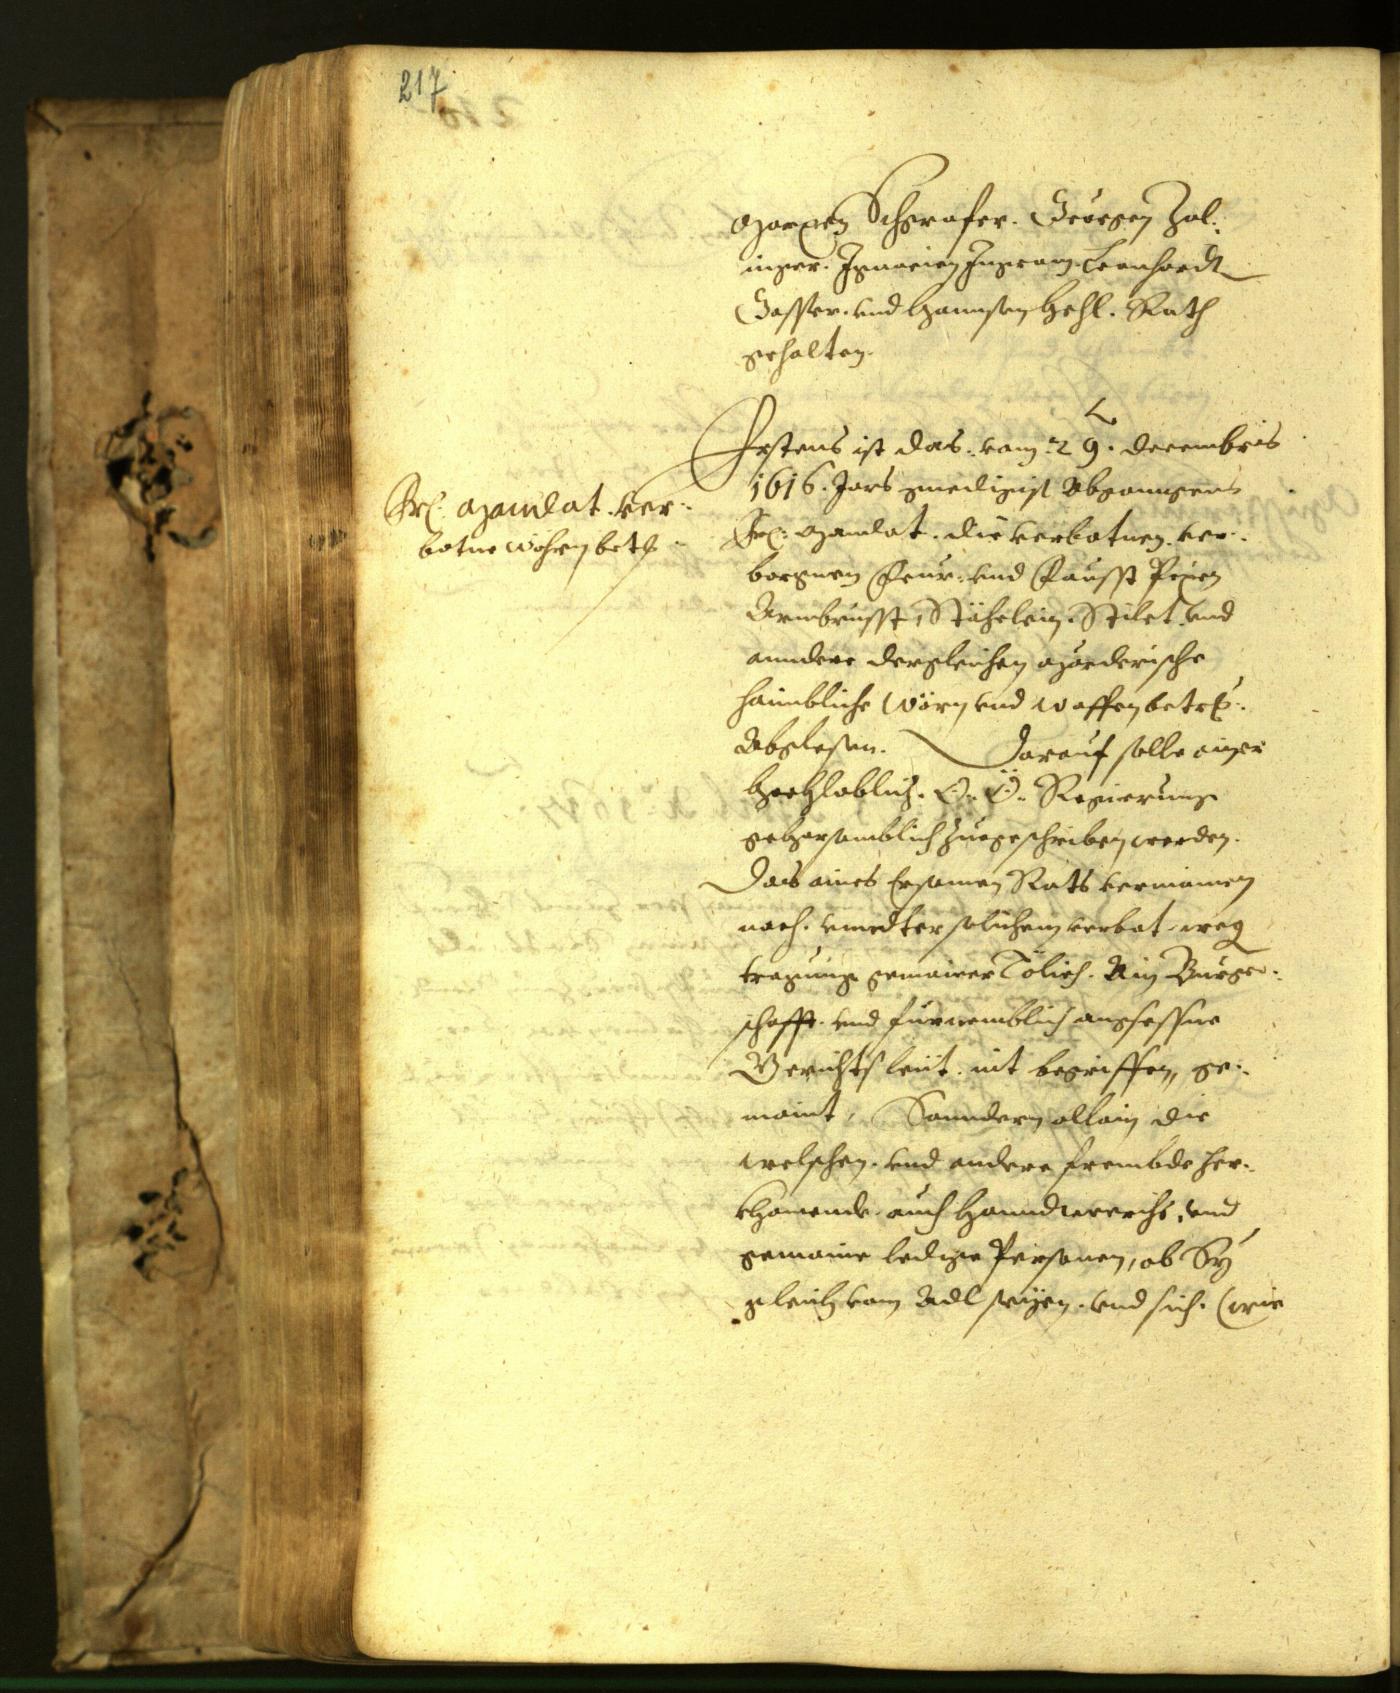 217
Marxen Schgrafer. Georgen Zal-
inger. Ignacien Ingram. Leonhardt
Gasser. und Hannsen Hehl. Rath
gehalten.
Erstens ist das. vom 29. decembris
1616. Jars gnedigist Abganngens
Frl: Mandat. ver-
botne wöhren betr
Frl: Mandat. die verbotnen. ver-
borgnen Feur. und Fausst Pixen
Armbrusst, Stähelein. Stilet. und
anndere dergleichen Mörderische
haimbliche wörn und waffen betr:
Abgelesen. Darauf solle ainer
Hochloblich. O. Ö. Regierung
gehorsamblich zuegeschriben werden.
Das aines Ersamen Rats vermainen
nach. undter solichem verbot. weg
tragung gemainer Tölich. Ain Burger-
schafft. und fürnemblich angesessne
Gerichtsleüt. nit begriffen, ge-
maint, Sonndern allain die
welschen. und andere frembde her-
khomende. auch Hanndtwerchs. und
gemaine ledige Personen, ob Sy
gleich vom Adl seyen. und sich. (wie